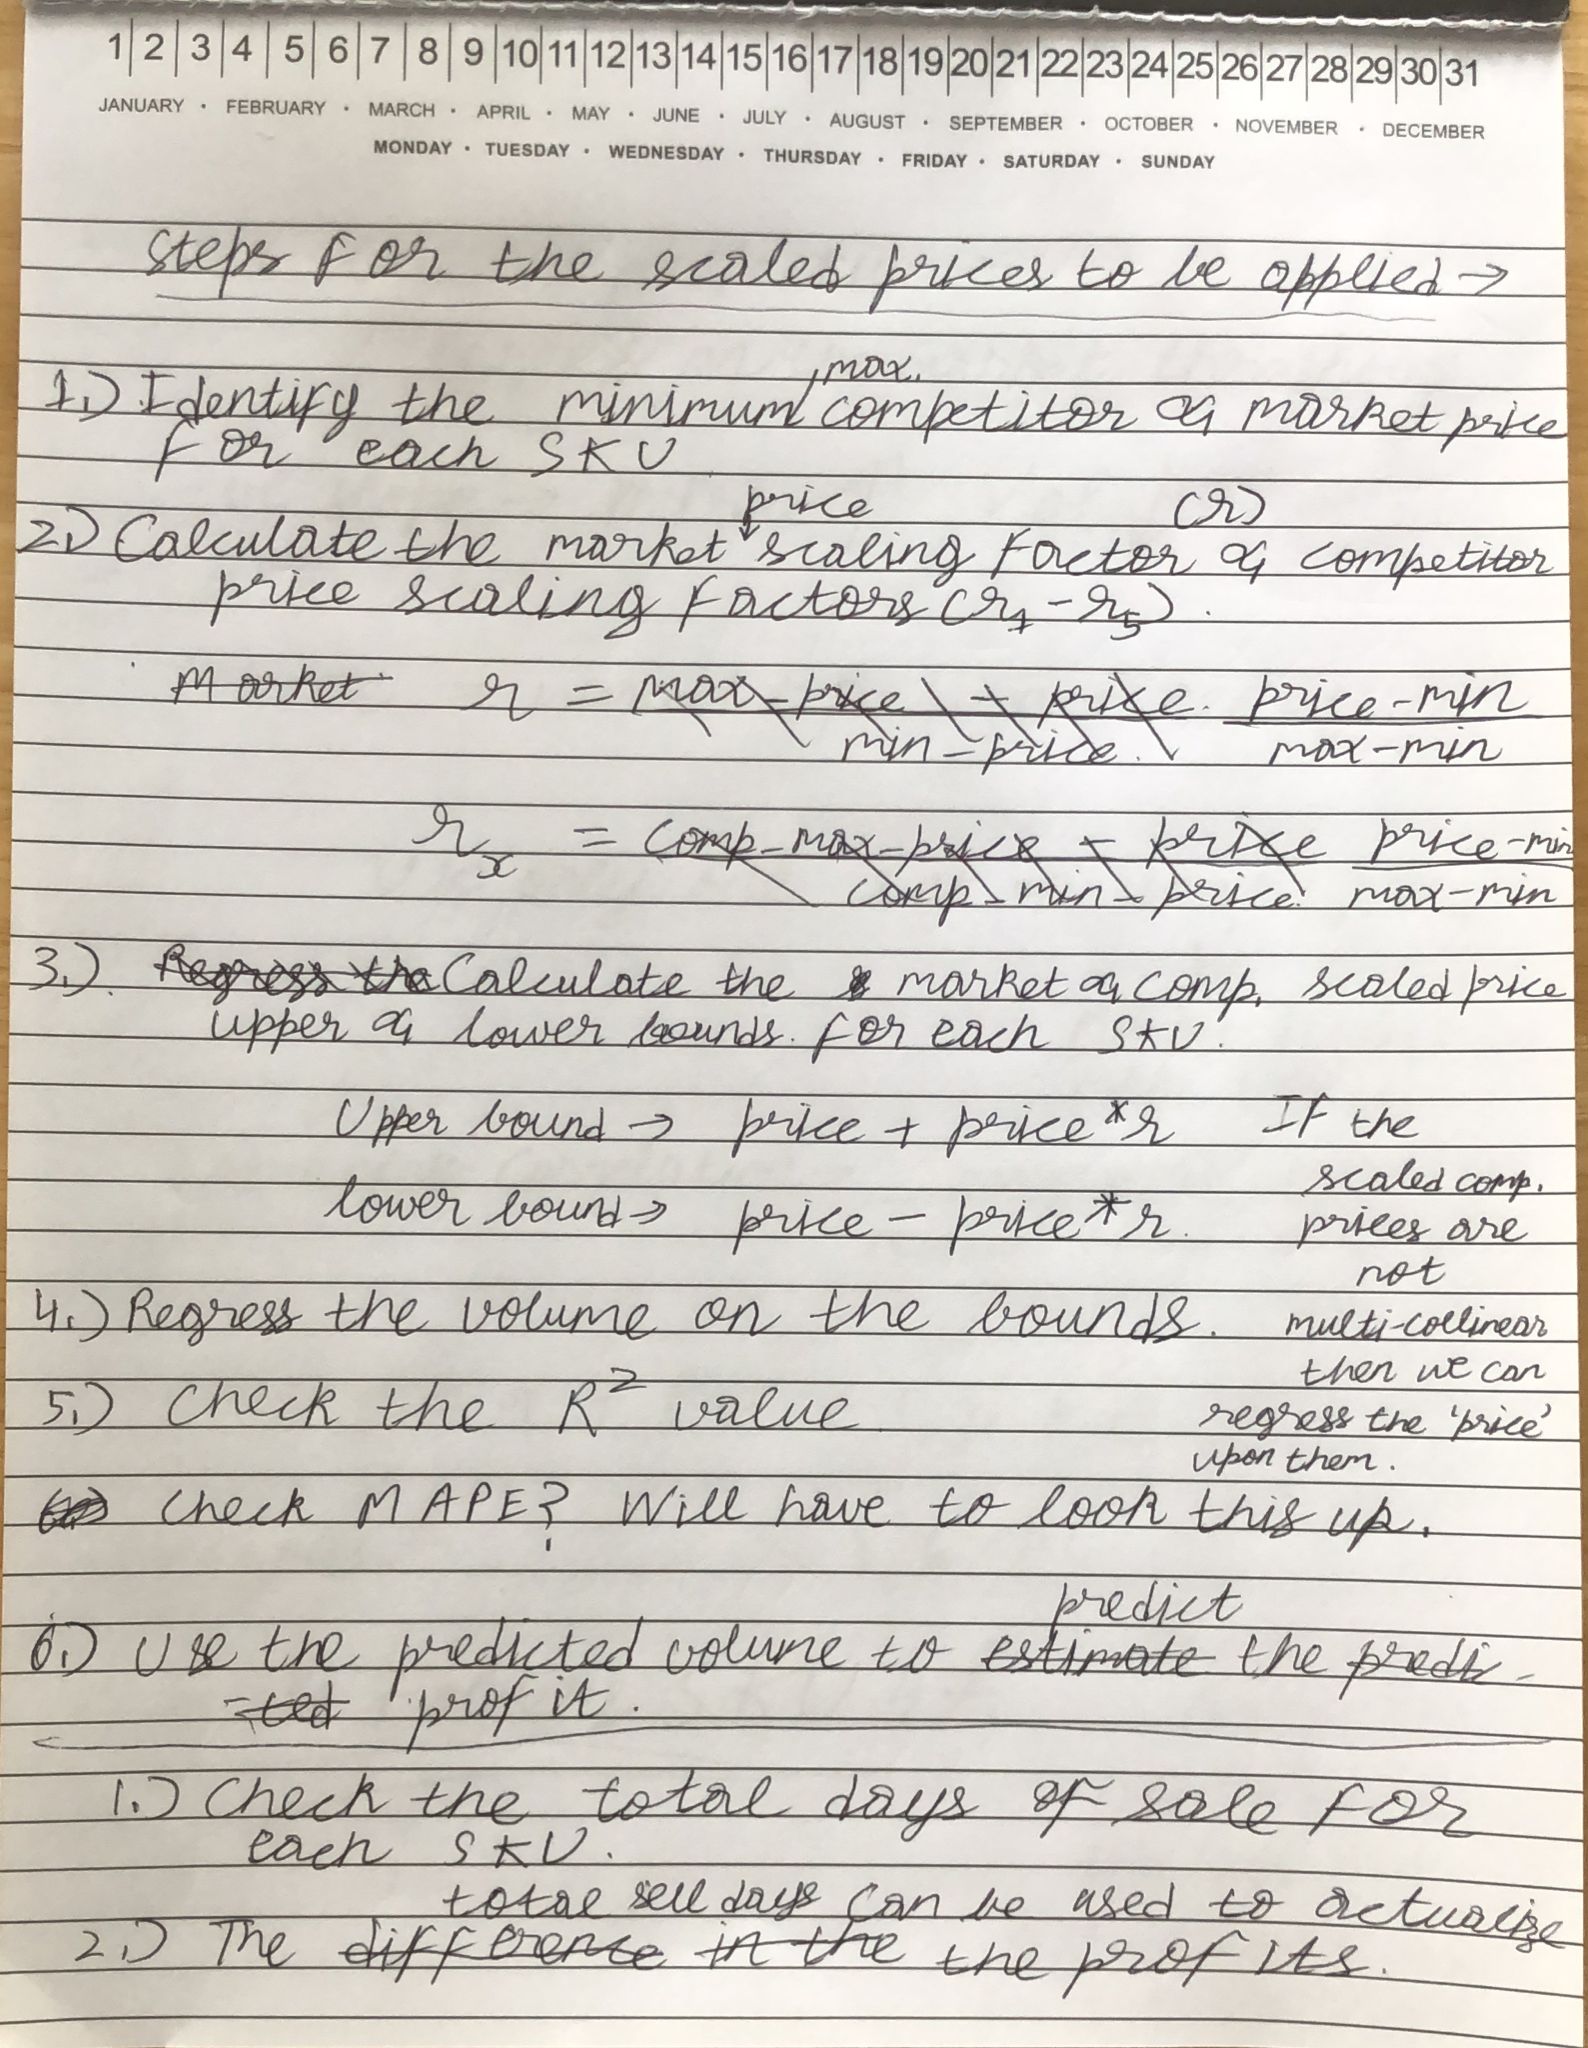 1 2 3 4 5 6 7 8 9 10 11 12 13 14 15 16 17 18 19 20 21 22 23 24 25 26 27 28 29 30 31
JANUARY · FEBRUARY · MARCH · APRIL · MAY · JUNE · JULY · AUGUST · SEPTEMBER · OCTOBER · NOVEMBER · DECEMBER
MONDAY · TUESDAY · WEDNESDAY · THURSDAY · FRIDAY · SATURDAY · SUNDAY
Steps for the scaled prices to be applied →
, max.
1.) Identify the minimum competitor & market price
for each SKU
price (r)
2.) Calculate the market scaling factor & competitor
price scaling factors (r1 - r5).
Market r = max-price - price. price-min
min-price. max-min
rx = comp-max-price - price price-min
comp-min-price. max-min
3.) Regress the Calculate the market & comp. scaled price
upper & lower bounds. for each SKU.
Upper bound → price + price*r
lower bound → price - price*r.
If the
scaled comp.
prices are
not
multi-collinear
then we can
regress the 'price'
upon them.
4.) Regress the volume on the bounds.
5.) Check the R² value
Check MAPE? Will have to look this up.
predict
6.) Use the predicted volume to estimate the predic-
-ted profit.
1.) Check the total days of sale for
each SKU.
total sell days can be used to actualize
2.) The difference in the the profits.